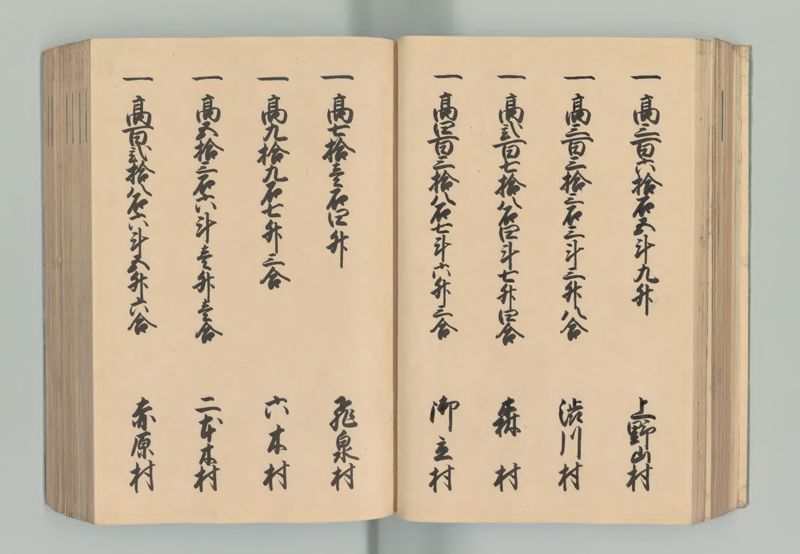 一 高三百六拾石五斗九升 上野山村
一 高三百三拾三石三斗三升八合 澁川村
一 高弐百七拾八石四斗七升四合 森村
一 高四百三拾八石七斗六升三合 御立村
一 高七拾壱石四升 飛泉村
一 高九拾九石七升三合 六木村
一 高五拾三石六斗壱升壱合 二本木村
一 高百弐拾八石六斗五升六合 赤原村